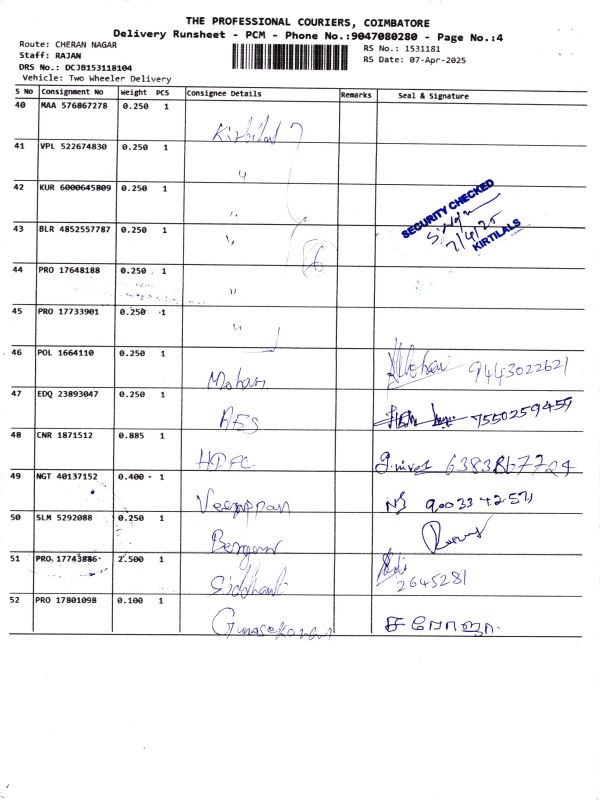 THE PROFESSIONAL COURIERS, COIMBATORE
Delivery Runsheet - PCM - Phone No.:9047080280 - Page No.:4
Route: CHERAN NAGAR
RS No.: 1531181
Staff: RAJAN
RS Date: 07-Apr-2025
DRS No.: DCJB153118104
Vehicle: Two Wheeler Delivery
S No Consignment No Weight PCS Consignee Details Remarks Seal & Signature
40 MAA 576867278 0.250 1
41 VPL 522674830 0.250 1 "
42 KUR 6000645809 0.250 1 "
SECURITY CHECKED
7/4/25
KIRTILALS
43 BLR 4852557787 0.250 1 "
6
44 PRO 17648188 0.250 1 "
45 PRO 17733901 0.250 1 "
46 POL 1664110 0.250 1 Mohan 9443022621
47 EDQ 23893047 0.250 1 AES 7550259457
48 CNR 1871512 0.885 1 HDFC
49 NGT 40137152 0.400 1 Veerappan
50 SLM 5292088 0.250 1
51 PRO 17743886 2.500 1 Siddhant 2645281
52 PRO 17801098 0.100 1 Gunasekaran சரோஜா